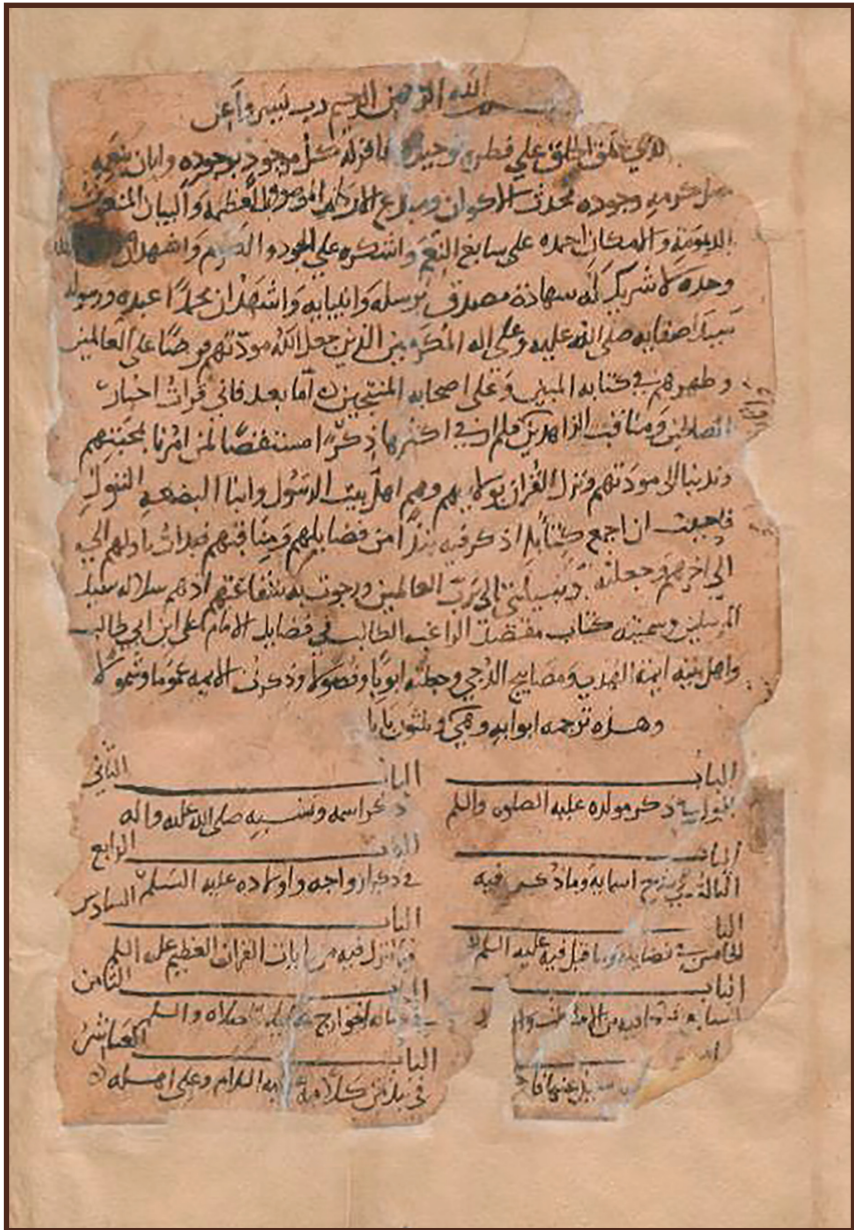 بسم الله الرحمن الرحيم رب يسر وأعن
الذي خلق الخلق على فطرة توحيده فاقر له كل موجود بوجوده وابان بنعمه
كرمه وجوده محدث الاكوان ومبدع الاركان الموصوف بالعظمة والبيان المنعوت
الديمومية والامكان احمده على سابغ النعم واشكره على الجود والكرم واشهد ان
وحده لا شريك له شهادة مصدق برسله وانبيايه واشهد ان محمدا عبده ورسوله
سيد اصفيايه صلى الله عليه وعلى اله المكرمين الذين جعل الله مودتهم فرضا على العالمين
وطهرهم في كتابه المبين وعلى اصحابه المنتجبين اما بعد فاني قرات اخبار
الصالحين ومناقب الزاهدين فلم ار في اكثرها ذكرا مستقصا لمن امرنا بمحبتهم
وندبنا الى مودتهم ونزل القران بولايهم وهم اهل بيت الرسول وابنا البضعه البتول
فاحببت ان اجمع كتابا اذكر فيه نبذا من فضايلهم ومناقبهم فبدات باولهم الى
الى اخرهم وجعلته وسيلتي الى رب العالمين ورجوت به شفاعتهم اذ هم سلاله سيد
المرسلين وسميته كتاب مقصد الراغب الطالب في فضايل الامام علي ابن ابي طالب
واهل بيته ايمة الهدى ومصابيح الدجى وجعلته ابوابا وفصولا وذكرت الايمه عموما وشمولا
وهذه ترجمه ابوابه وهي وثلثون بابا
الباب الباب الثاني
ذكر مولده عليه الصلوة والسلم ذكر اسمه ونسبه صلى الله عليه واله
الباب الباب الرابع
الثالث في شرح اسمايه وما ذكر فيه في ذكر ازواجه واولاده عليه السلم
الباب الباب السادس
الخامس في فضايله وما قيل فيه عليه السلم فيما نزل فيه من ايات القران العظيم عليه السلم
الباب الباب الثامن
السابع في قتاله الخوارج عليه الصلاه والسلم
الباب العاشر
في نبذ من كلامه عليه السلام وعلى اهله